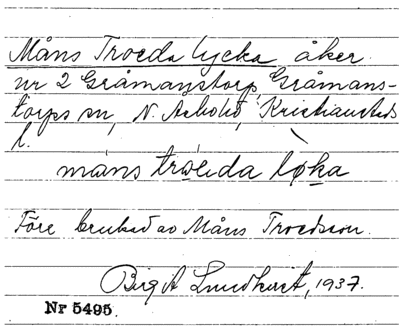 Måns Troeda lycka åker
nr 2 Gråmanstorp, Gråmans-
torps sn, N. Åsbohd, Kristianstads
l.
måns troeda løka
Före brukad av Måns Troedsson.
Birgit Lundkvist, 1937.
Nr 5495.